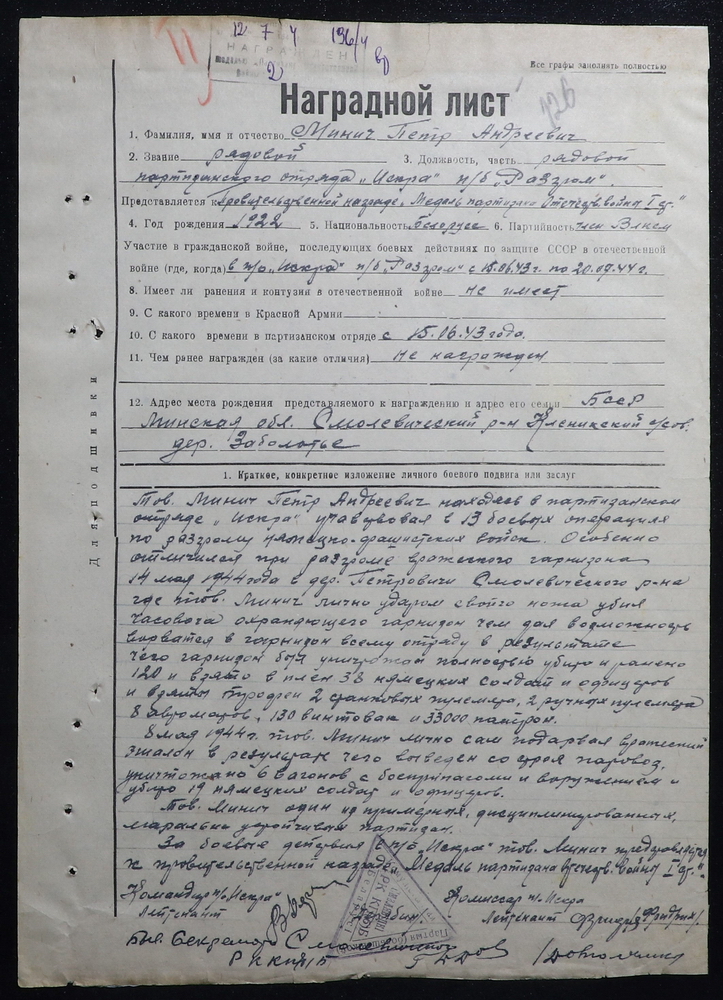 12 7 4 136/4
НАГРАЖДЕН
Все графы заполнять полностью
126
Наградной лист
1. Фамилия, имя и отчество Минич Петр Андреевич
2. Звание рядовой 3. Должность, часть рядовой
партизанского отряда „Искра" п/б „Разгром".
Представляется к Правительственной награде „Медаль партизана Отечеств. войны I ст."
4. Год рождения 1922 5. Национальность белорусс 6. Партийность член Влксм
Участие в гражданской войне, последующих боевых действиях по защите СССР в отечественной
войне (где, когда) в п/о „Искра" п/б „Разгром" с 15.06.43 г. по 20.07.44 г.
8. Имеет ли ранения и контузия в отечественной войне не имеет
9. С какого времени в Красной Армии
10. С какого времени в партизанском отряде с 15.06.43 года.
11. Чем ранее награжден (за какие отличия) не награжден
12. Адрес места рождения представляемого к награждению и адрес его семьи БССР
Минская обл. Смолевический р-н Кленикский с/сов.
дер. Заболотье
Для подшивки
1. Краткое, конкретное изложение личного боевого подвига или заслуг
Тов. Минич Петр Андреевич находясь в партизанском
отряде „Искра" учавствовал в 13 боевых операциях
по разгрому немецко-фашистских войск. Особенно
отличился при разгроме вражеского гарнизона
14 мая 1944 года в дер. Петровичи Смолевического р-на
где тов. Минич лично ударом своего ножа убил
часового охраняющего гарнизон чем дал возможность
ворватся в гарнизон всему отряду в результате
чего гарнизон был уничтожен полностью убито и ранено
120 и взято в плен 38 немецких солдат и офицеров
и взяты трофеи 2 станковых пулемета, 2 ручных пулемета
8 автоматов, 130 винтовак и 33000 патрон.
8 мая 1944 г. тов. Минич лично сам подарвал вражеский
эшалон в результате чего выведен со строя паровоз,
уничтожано 6 вагонов с боеприпасами и воружением и
убито 19 немецких солдат и офицеров.
Тов. Минич один из примерных, дисциплинированных,
маральна устойчивых партизан.
За боевые действия в п/о „Искра" тов. Минич представляется
к правительственной награде „Медаль партизана Отечеств. войны I ст."
Командир п/о „Искра" Комиссар п/о Искра
Лейтенант Лейтенант Фридрих /Фридрих/
Быв. Секретарь Смолевичского
РККП/б